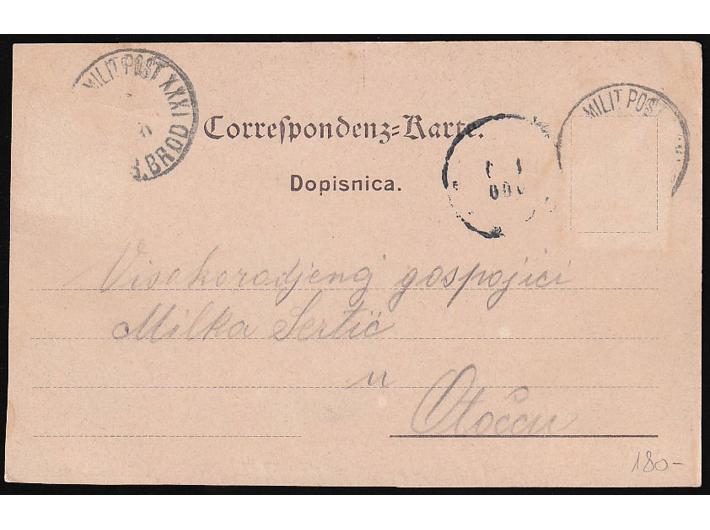 MILIT POST XXXI
B.BROD
MILIT POS
Correſpondenz=Karte.
Dopisnica.
Visokorodjenoj gospojici
Milka Sertić
u
Otočcu
180-